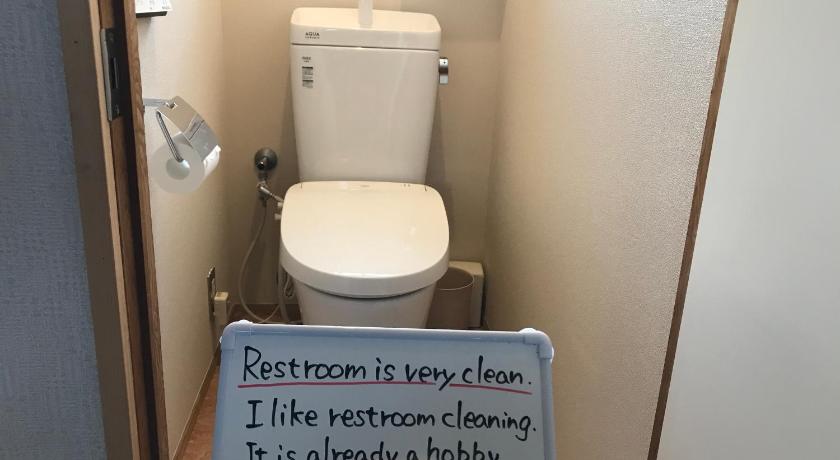 AQUA
Restroom is very clean.
I like restroom cleaning.
It is already a hobby